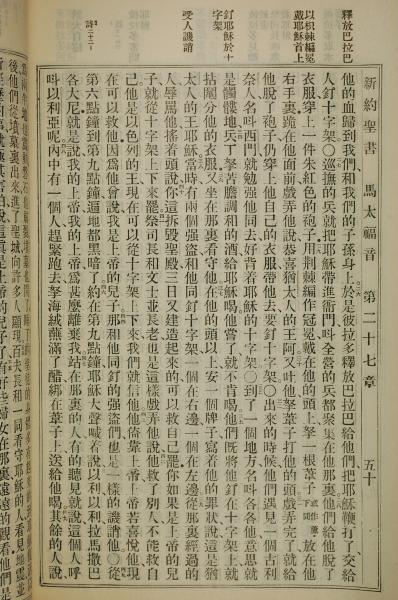 新約聖書 馬太福音 第二十七章 五十
釋放巴拉巴
以棘編冕
戴耶穌首上
釘耶穌於十
字架
受人譏誚
他的血歸到我們和我們的子孫身上於是彼拉多釋放巴拉巴給他們把耶穌鞭打了交給
人釘十字架○巡撫的兵就把耶穌帶進衙門叫全營的兵都聚集在他那裏他們給他脫了
衣服穿上一件朱紅色的袍子用荊棘編作冠冕戴在他的頭上拏一根葦子放在他
右手裏跪在他面前戲弄他說恭喜猶太人的王阿又吐他拏葦子打他的頭戲弄完了就給
他脫了袍子仍穿上他自己的衣服帶他去要釘十字架○出來的時候他們遇見一個古利
奈人名叫西門就勉強他同去好背着耶穌的十字架○到了一個地方名叫各各他意思就
是髑髏地兵丁拏苦膽調和的酒給耶穌喝他嘗了就不肯喝他們既將他釘在十字架上就
拈鬮分他的衣服又坐在那裏看守他在他的頭以上安一個牌子寫着他的罪狀說這是猶
太人的王耶穌當時有兩個強盜和他同釘十字架一個在右邊一個在左邊從那裏經過的
人辱罵他搖着頭說你這拆毀聖殿三日又建造起來的可以救自己罷你如果是上帝的兒
子就從十字架上下來罷祭司長和文士並長老也是這樣戲弄他說他救了別人不能救自
己他是以色列的王現在可以從十字架上下來我們就信他他倚靠上帝上帝若喜悅他現
在可以救他因為他曾說我是上帝的兒子那和他同釘的強盜們也是一樣的譏誚他○從
第六點鐘到第九點鐘遍地都黑暗了約在第九點鐘耶穌大聲喊着說以利以利拉馬撒巴
各大尼就是說我的上帝我的上帝為甚麼離棄我站在那裏的人有的聽見就說這個人呼
叫以利亞呢內中有一個人趕緊跑去拏海絨蘸滿了醋綁在葦子上送給他喝其餘的人說
後他們從墳墓裏出來進了聖城向許多人顯現百夫長和一同看守耶穌的人看見地震並